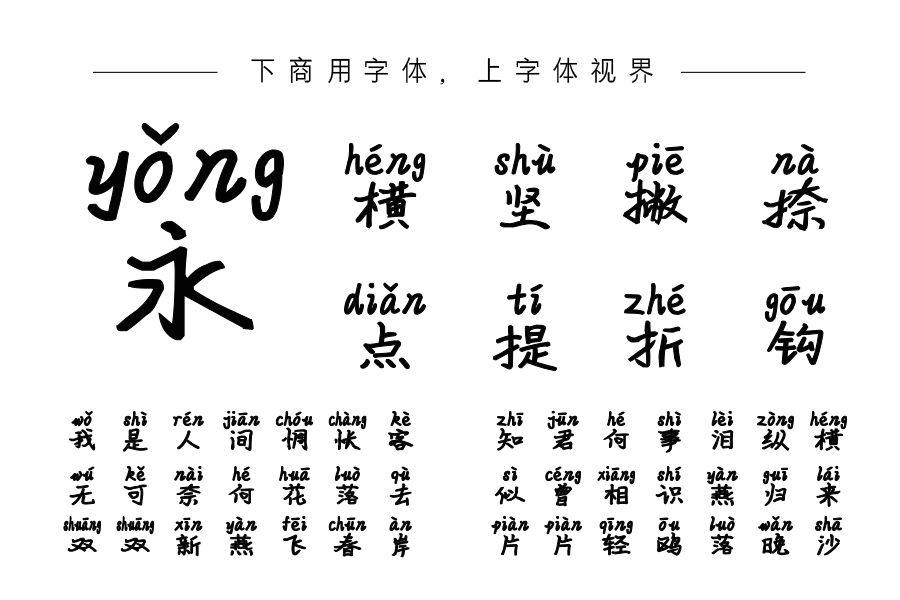 下商用字体，上字体视界
yǒng
永
héng shù piē nà
横 坚 撇 捺
diǎn tí zhé gōu
点 提 折 钩
wǒ shì rén jiān chóu chàng kè
我 是 人 间 惆 怅 客
wú kě nài hé huā luò qù
无 可 奈 何 花 落 去
shuāng shuāng xīn yàn fēi chūn àn
双 双 新 燕 飞 春 岸
zhī jūn hé shì lèi zòng héng
知 君 何 事 泪 纵 横
sì céng xiāng shí yàn guī lái
似 曾 相 识 燕 归 来
piàn piàn qīng ōu luò wǎn shā
片 片 轻 鸥 落 晚 沙